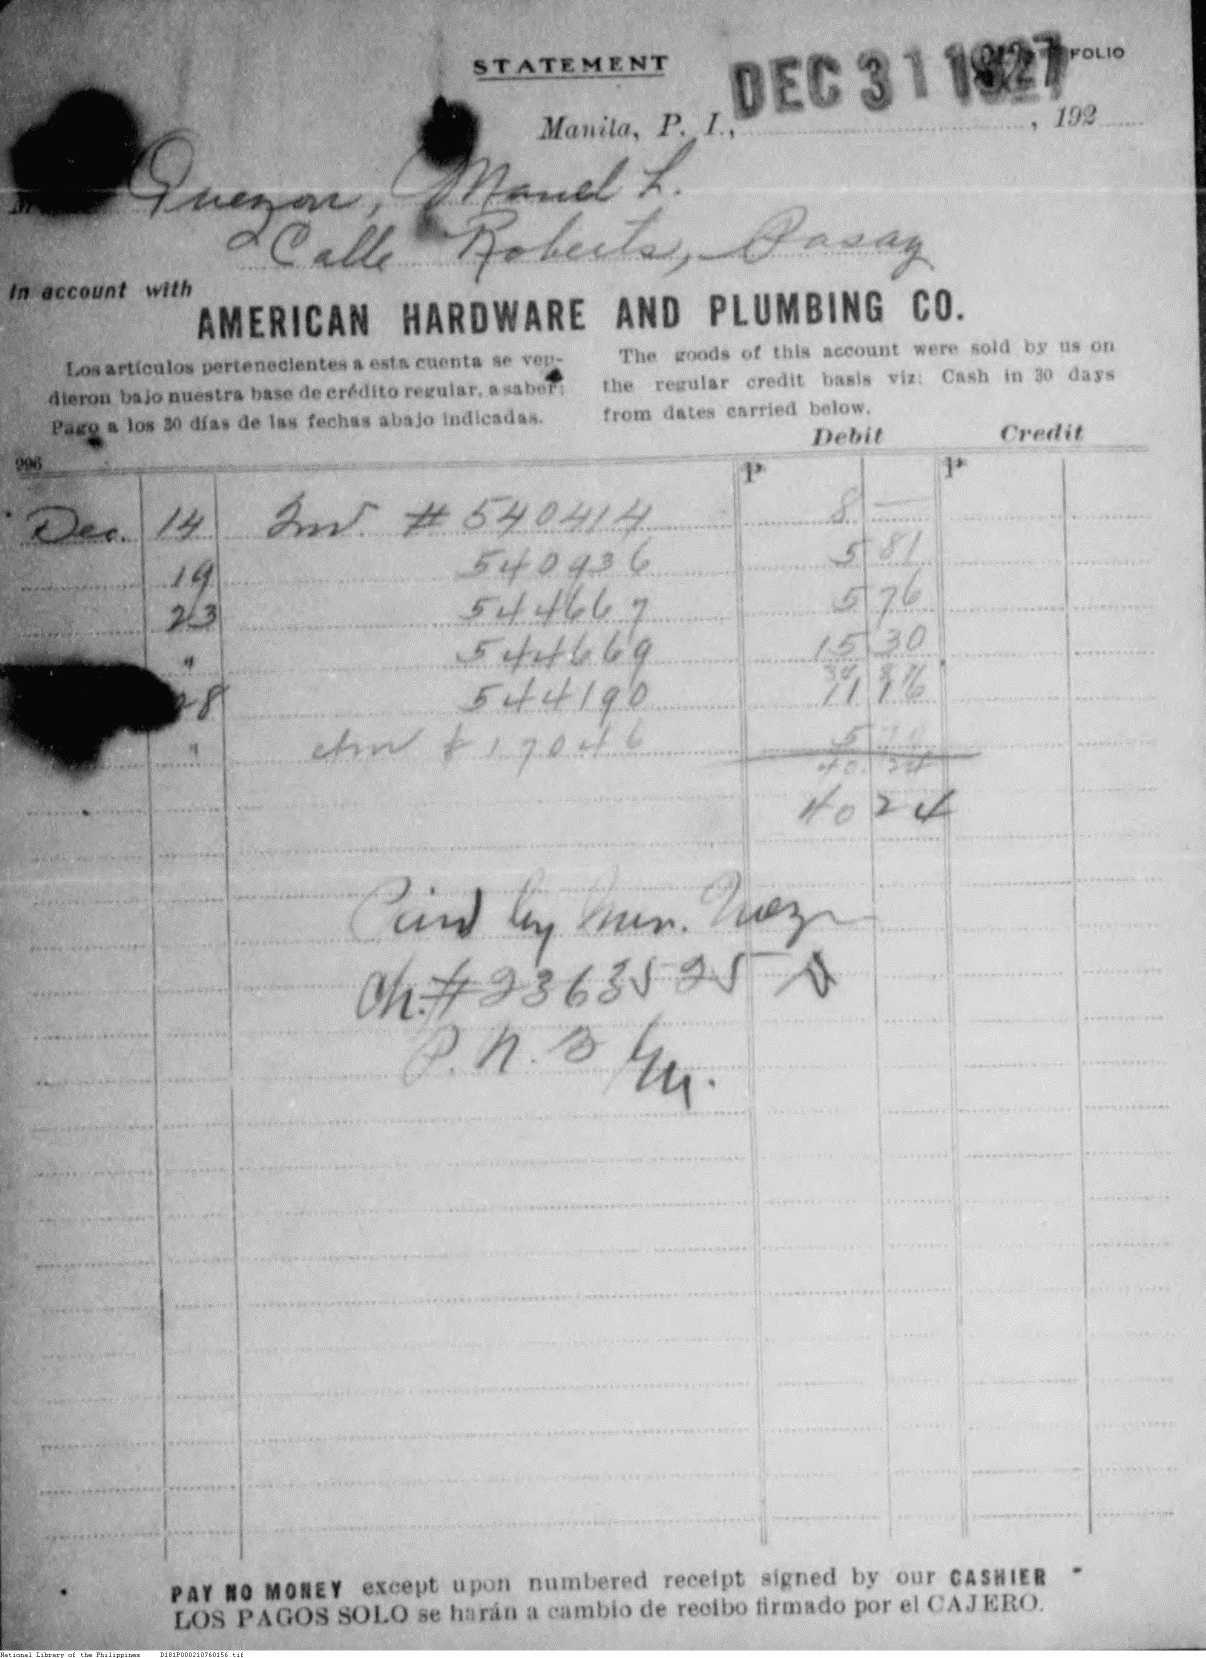 STATEMENT
FOLIO
DEC 31 1927
Manila, P. I., , 192
Quezon, Manuel L.
Calle Roberts, Pasay
In account with
AMERICAN HARDWARE AND PLUMBING CO.
Los artículos pertenecientes a esta cuenta se ven-
dieron bajo nuestra base de crédito regular, a saber:
Pago a los 30 días de las fechas abajo indicadas.
The goods of this account were sold by us on
the regular credit basis viz: Cash in 30 days
from dates carried below.
Debit Credit
996 P P
Dec. 14 Inv. # 540414 8 —
19 540936 5 81
23 544667 5 76
" 544669 15 30
28 544190 11 16
" 17046 5
40 24
40 24
Paid by Mrs. Quezon
Ch. # 2363525
P. N. B
PAY NO MONEY except upon numbered receipt signed by our CASHIER
LOS PAGOS SOLO se harán a cambio de recibo firmado por el CAJERO.
National Library of the Philippines D181P000210760156.tif